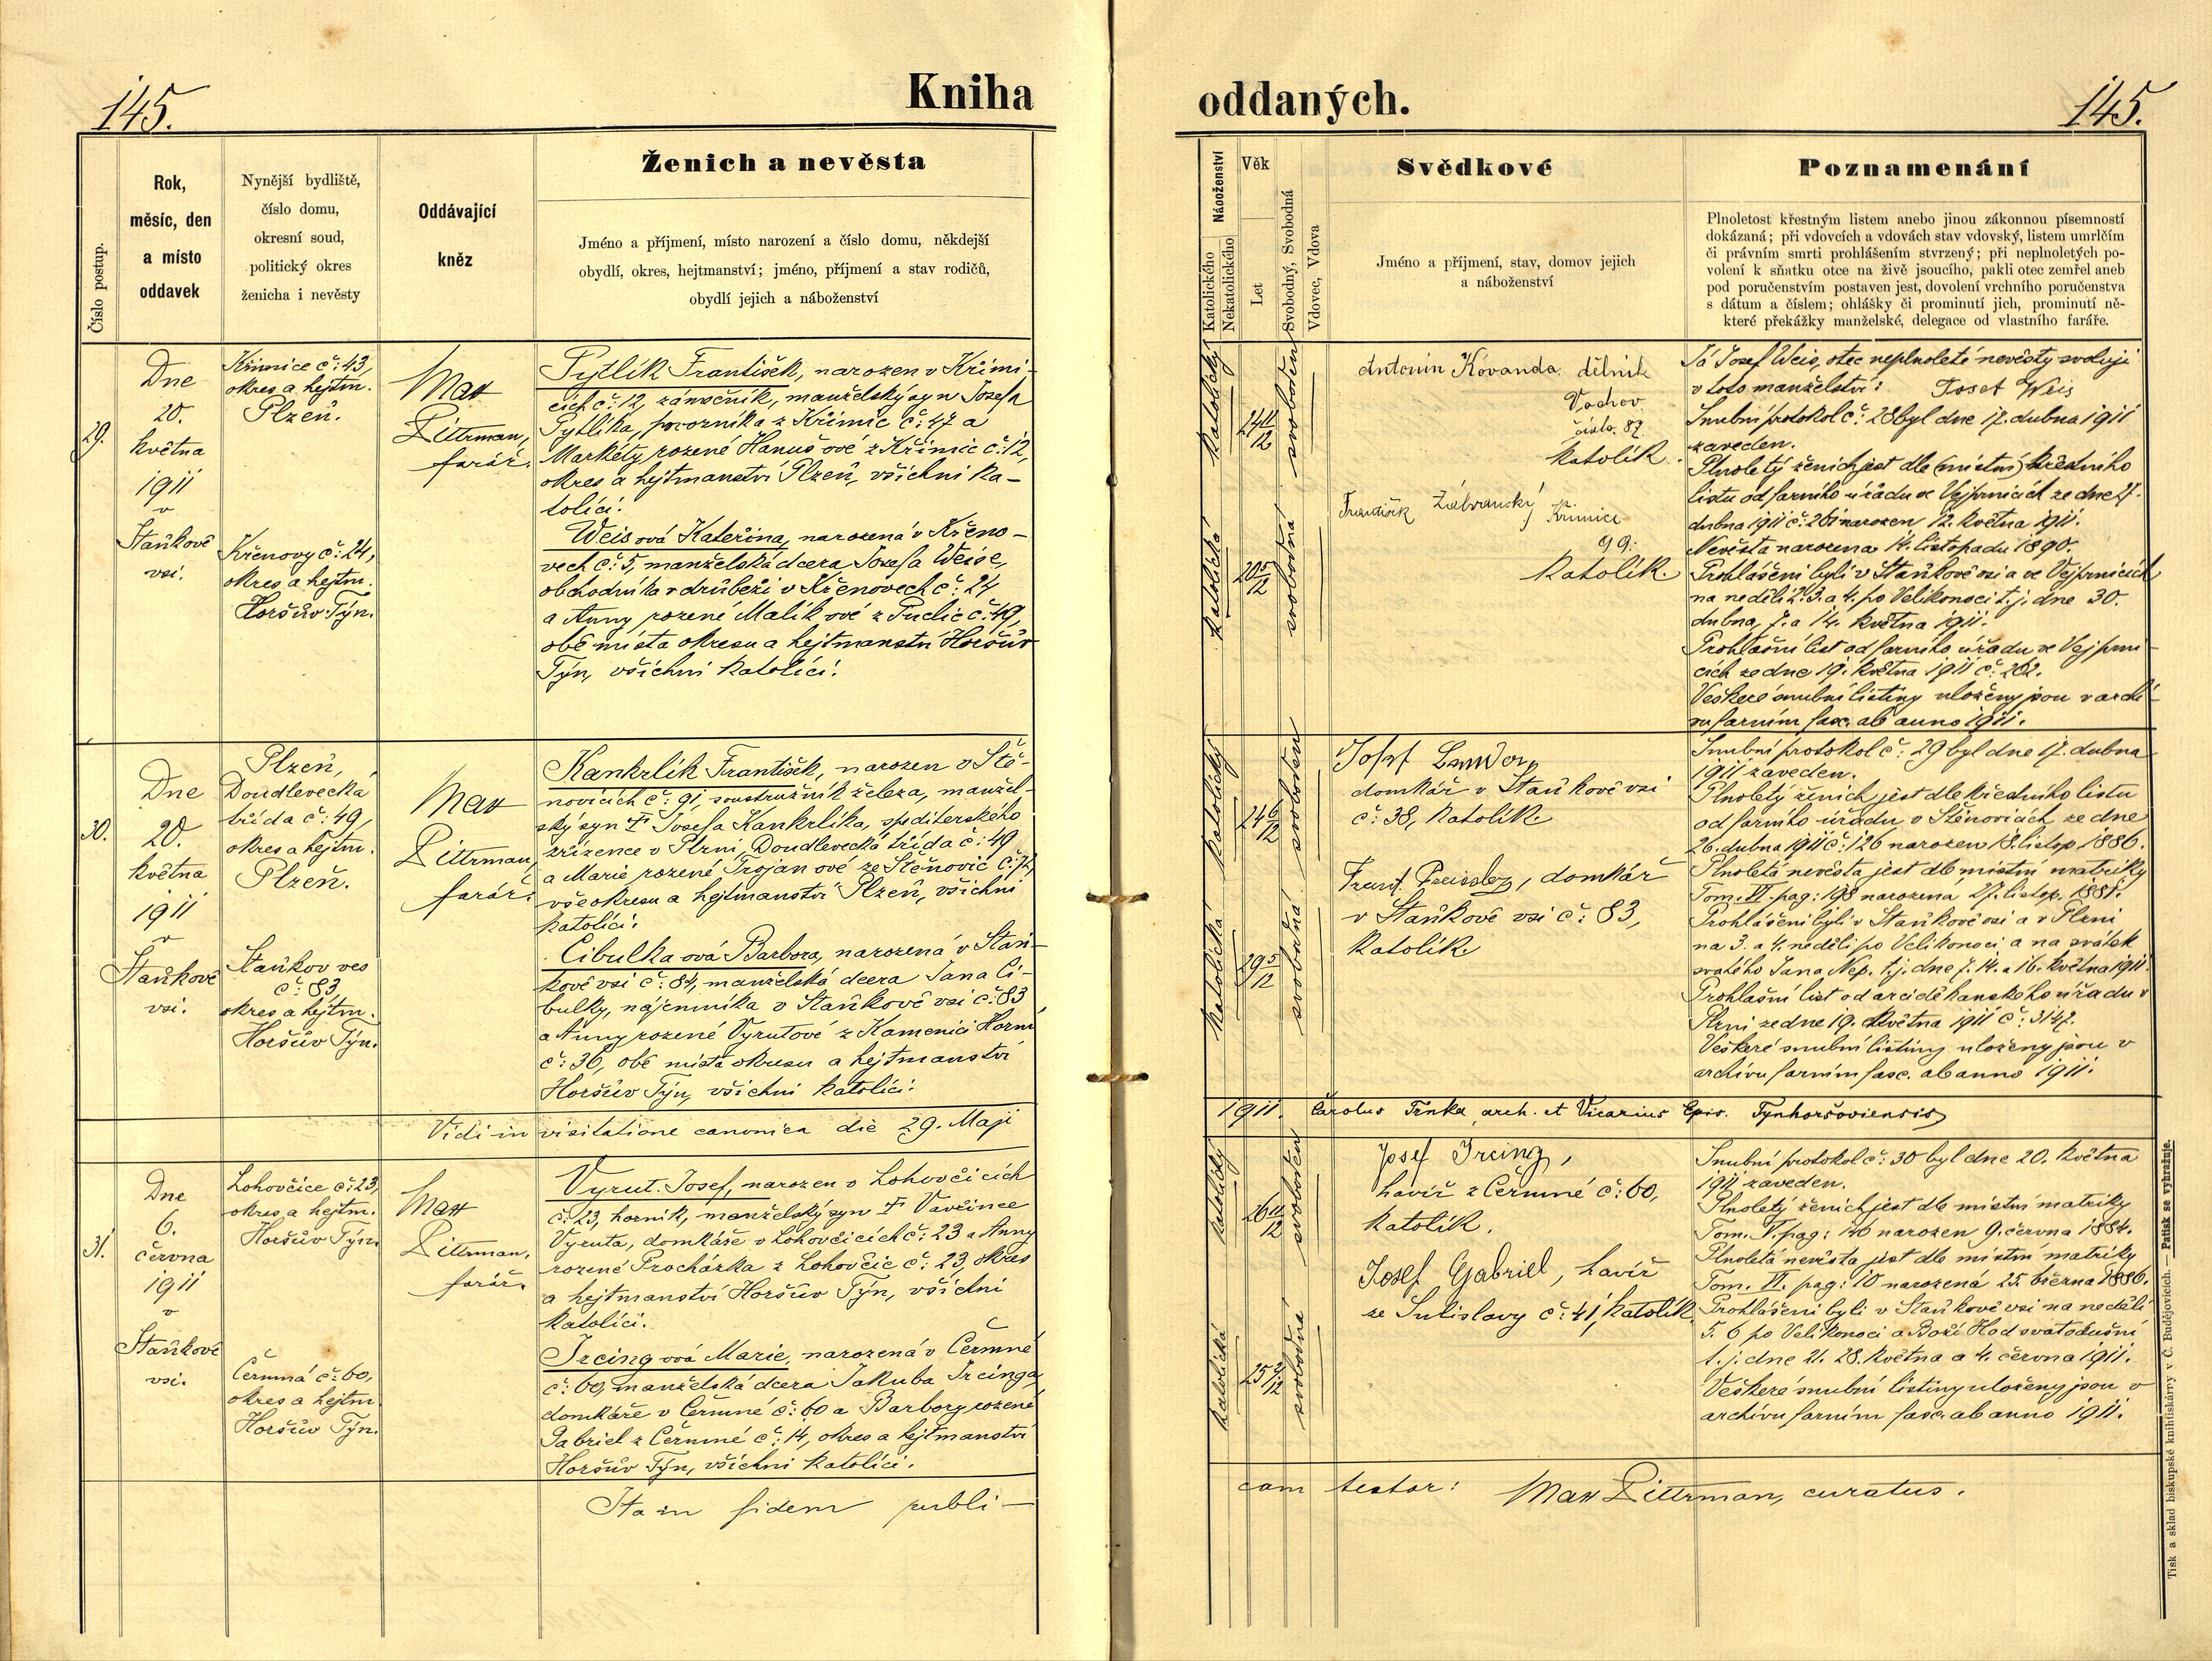 145.
Kniha
Číslo postup.
Rok,
měsíc, den
a místo
oddavek
Nynější bydliště,
číslo domu,
okresní soud,
politický okres
ženicha i nevěsty
Oddávající
kněz
Ženich a nevěsta
Jméno a příjmení, místo narození a číslo domu, někdejší
obydlí, okres, hejtmanství; jméno, příjmení a stav rodičů,
obydlí jejich a náboženství
29.
Dne
20.
května
1911
v
Staňkově
vsi.
Křimice č: 43,
okres a hejtm.
Plzeň.
Křenovy č: 24,
okres a hejtm.
Horšův Týn.
Max
Dittrman,
farář.
Pytlík František, narozen v Křimi-
cích č: 12, zámečník, manželský syn Josefa
Pytlíka, pozorníka z Křimic č: 47 a
Markéty rozené Hanuš ové z Křimic č: 12,
okres a hejtmanství Plzeň, všichni ka-
tolíci.
Weis ová Kateřina, narozená v Křeno-
vech č: 5, manželská dcera Josefa Weise,
obchodníka v drůbeži v Křenovech č: 24
a Anny rozené Malík ové z Puclic č: 49,
obě místa okresu a hejtmanství Horšův
Týn, všichni katolíci.
30.
Dne
20.
května
1911
v
Staňkově
vsi.
Plzeň,
Doudlevecká
třída č: 49,
okres a hejtm.
Plzeň.
Staňkov ves
č: 83
okres a hejtm.
Horšův Týn.
Max
Dittrman,
farář.
Kankrlík František, narozen v Ště-
novicích č: 91, soustružník železa, manžel-
ský syn † Josefa Kankrlíka, speditérského
zřízence v Plzni, Doudlevecká třída č: 49
a Marie rozené Trojan ové ze Štěnovic č: 72,
vše okresu a hejtmanství Plzeň, všichni
katolíci.
Cibulka ová Barbora, narozená v Staň-
kově vsi č: 84, manželská dcera Jana Ci-
bulky, nájemníka v Staňkově vsi č: 83
a Anny rozené Vyrutové z Kamenici Horní
č: 36, obě místa okresu a hejtmanství
Horšův Týn, všichni katolíci.
Vidi in visitatione canonica die 29. Maji
31.
Dne
6.
června
1911
v
Staňkově
vsi.
Lohovčice č: 23,
okres a hejtm.
Horšův Týn.
Čermná č: 60,
okres a hejtm.
Horšův Týn.
Max
Dittrman,
farář.
Vyrut Josef, narozen v Lohovčicích
č: 23, horník, manželský syn † Vavřince
Vyruta, domkáře v Lohovčicích č: 23 a Anny
rozené Procházka z Lohovčic č: 23, okres
a hejtmanství Horšův Týn, všichni
katolíci.
Ircing ová Marie, narozená v Čermné
č: 60, manželská dcera Jakuba Ircinga,
domkáře v Čermné č: 60 a Barbory rozené
Gabriel z Čermné č: 14, okres a hejtmanství
Horšův Týn, všichni katolíci.
Ita in fidem publi-
oddaných.
145.
Náboženství
Katolického
Nekatolického
Věk
Let
Svobodný, Svobodná
Vdovec, Vdova
Svědkové
Jméno a příjmení, stav, domov jejich
a náboženství
Poznamenání
Plnoletost křestným listem anebo jinou zákonnou písemností
dokázaná; při vdovcích a vdovách stav vdovský, listem umrlčím
či právním smrti prohlášením stvrzený; při neplnoletých po-
volení k sňatku otce na živě jsoucího, pakli otec zemřel aneb
pod poručenstvím postaven jest, dovolení vrchního poručenstva
s dátum a číslem; ohlášky či prominutí jich, prominutí ně-
které překážky manželské, delegace od vlastního faráře.
katolický
svoboden
katolická
20 5/12
svobodná
Antonín Kovanda dělník
Vochov
číslo. 87.
katolík.
František Zábranský Křimice
99.
katolík.
Já Josef Weis, otec neplnoleté nevěsty svoluji
v toto manželství: Josef Weis
Snubní protokol č: 28 byl dne 17. dubna 1911
zaveden.
Plnoletý ženich jest dle (místní) křestního
listu od farního úřadu ve Vejprnicích ze dne 27.
dubna 1911 č: 261 narozen 12. května 1911.
Nevěsta narozena 14. listopadu 1890.
Prohlášeni byli v Staňkově vsi a ve Vejprnicích
na neděli 2. 3. a 4. po Velikonoci t. j. dne 30.
dubna, 7. a 14. května 1911.
Prohlašní list od farního úřadu ve Vejprni-
cích ze dne 19. května 1911 č: 262.
Veškeré snubní listiny uloženy jsou v archí-
vu farním fasc. ab anno 1911.
katolický
24 6/12
svoboden
katolická
29 5/12
svobodná
Josef
domkář v Staňkově vsi
č: 38, katolík.
Frant. domkář
v Staňkově vsi č: 83,
katolík.
Snubní protokol č: 29 byl dne 17. dubna
1911 zaveden.
Plnoletý ženich jest dle křestního listu
od farního úřadu v Štěnovicích ze dne
26. dubna 1911 č: 126 narozen 18. listop. 1886.
Plnoletá nevěsta jest dle místní matriky
Tom. VI. pag: 198 narozená 27. listop. 1881.
Prohlášeni byli v Staňkově vsi a v Plzni
na 3. a 4. neděli po Velikonoci a na svátek
svatého Jana Nep. t. j. dne 7. 14. a 16. května 1911.
Prohlašní list od arciděkanského úřadu v
Plzni ze dne 19. května 1911 č: 3147.
Veškeré snubní listiny uloženy jsou v
archívu farním fasc. ab anno 1911.
1911. Carolus Trnka, arch. et Vicarius Epis. Tynhoršoviensis
katolický
26 11/12
svoboden
katolická
25 2/12
svobodná
Josef Ircing,
havíř z Čermné č: 60,
katolík.
Josef Gabriel, havíř
ze Sulislavy č: 41, katolík.
Snubní protokol č: 30 byl dne 20. května
1911 zaveden.
Plnoletý ženich jest dle místní matriky
Tom. V. pag: 146 narozen 9. června 1884.
Plnoletá nevěsta jest dle místní matriky
Tom. VI. pag: 10 narozená 25. března 1886.
Prohlášeni byli v Staňkově vsi na neděli
5. 6 po Velikonoci a Boží Hod svatodušní
t. j. dne 21. 28. května a 4. června 1911.
Veškeré snubní listiny uloženy jsou v
archívu farním fasc. ab anno 1911.
cam testor: Max Dittrman, curatus.
Tisk a sklad biskupské knihtiskárny v Č. Budějovicích. — Patisk se vyhražuje.